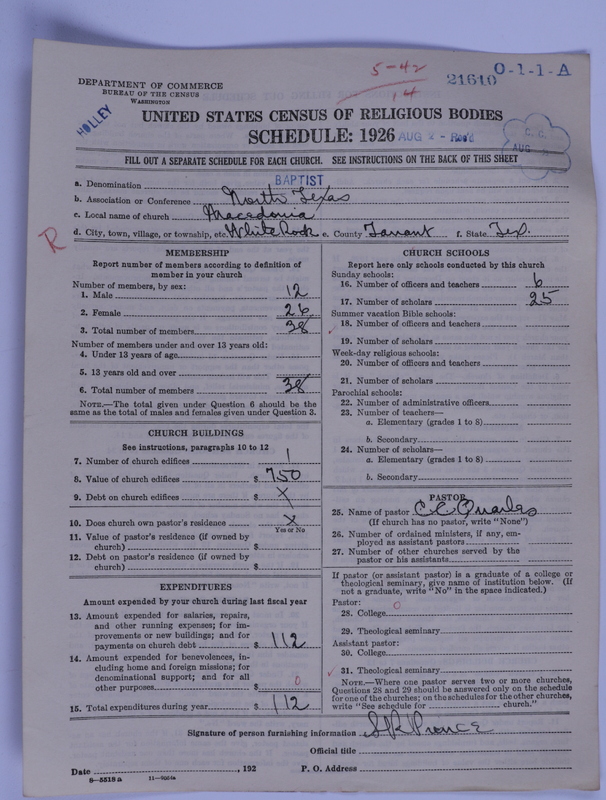 5-42
14
21610 0-1-1-A
DEPARTMENT OF COMMERCE
BUREAU OF THE CENSUS
WASHINGTON
HOLLEY
UNITED STATES CENSUS OF RELIGIOUS BODIES
SCHEDULE: 1926 AUG 2 - Rec'd
C.C.
AUG
FILL OUT A SEPARATE SCHEDULE FOR EACH CHURCH. SEE INSTRUCTIONS ON THE BACK OF THIS SHEET
a. Denomination BAPTIST
b. Association or Conference North Texas
c. Local name of church Macedonia
d. City, town, village, or township, etc. White Rock e. County Tarrant f. State Tex.
R
MEMBERSHIP
Report number of members according to definition of
member in your church
Number of members, by sex:
1. Male 12
2. Female 26
3. Total number of members 38
Number of members under and over 13 years old:
4. Under 13 years of age
5. 13 years old and over
6. Total number of members 38
NOTE.—The total given under Question 6 should be the
same as the total of males and females given under Question 3.
CHURCH BUILDINGS
See instructions, paragraphs 10 to 12
7. Number of church edifices 1
8. Value of church edifices $ 750
9. Debt on church edifices $ X
10. Does church own pastor's residence X
Yes or No
11. Value of pastor's residence (if owned by
church) $
12. Debt on pastor's residence (if owned by
church) $
EXPENDITURES
Amount expended by your church during last fiscal year
13. Amount expended for salaries, repairs,
and other running expenses; for im-
provements or new buildings; and for
payments on church debt $ 112
14. Amount expended for benevolences, in-
cluding home and foreign missions; for
denominational support; and for all
other purposes $ 0
15. Total expenditures during year $ 112
CHURCH SCHOOLS
Report here only schools conducted by this church
Sunday schools:
16. Number of officers and teachers 6
17. Number of scholars 25
Summer vacation Bible schools:
18. Number of officers and teachers
19. Number of scholars
Week-day religious schools:
20. Number of officers and teachers
21. Number of scholars
Parochial schools:
22. Number of administrative officers
23. Number of teachers—
a. Elementary (grades 1 to 8)
b. Secondary
24. Number of scholars—
a. Elementary (grades 1 to 8)
b. Secondary
PASTOR
25. Name of pastor C C Quarles
(If church has no pastor, write "None")
26. Number of ordained ministers, if any, em-
ployed as assistant pastors
27. Number of other churches served by the
pastor or his assistants
If pastor (or assistant pastor) is a graduate of a college or
theological seminary, give name of institution below. (If
not a graduate, write "No" in the space indicated.)
Pastor: 0
28. College
29. Theological seminary
Assistant pastor:
30. College
31. Theological seminary
NOTE.—Where one pastor serves two or more churches,
Questions 28 and 29 should be answered only on the schedule
for one of the churches; on the schedules for the other churches,
write "See schedule for church."
Signature of person furnishing information
Official title
Date , 192 P. O. Address
8-5518 a 11-9664a